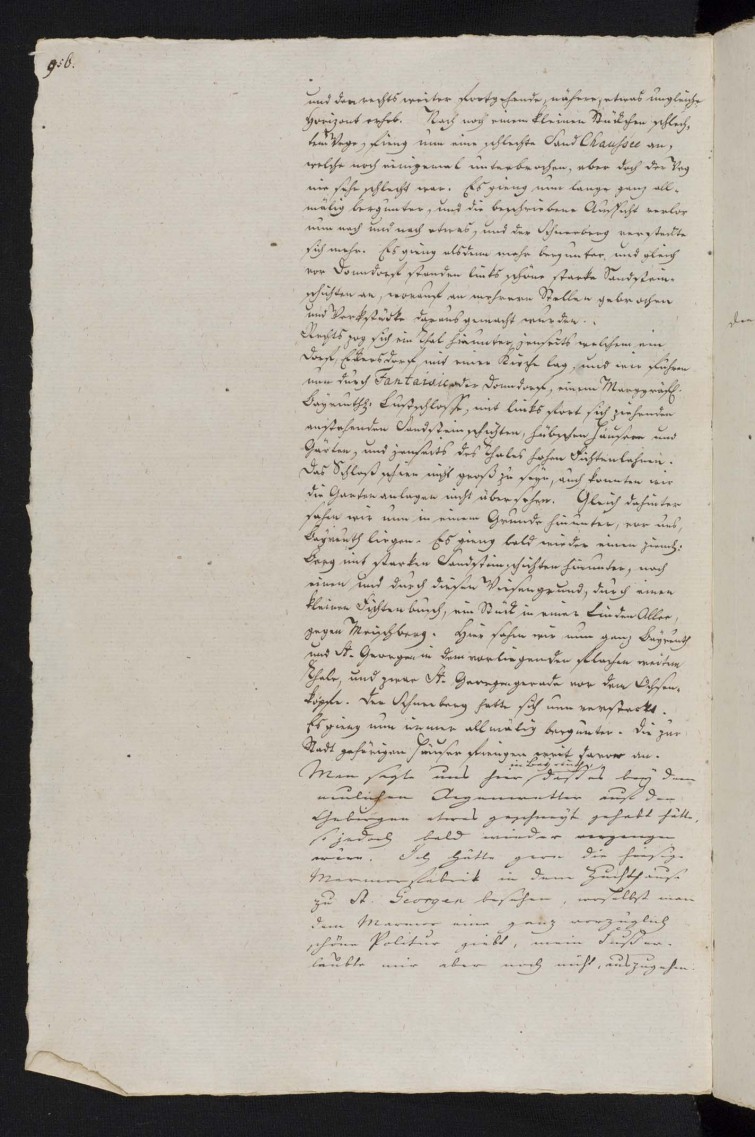 9:b.
und dann rechts weiter fortgehende, nähere, etwas ungleiche
Horizont erhob. Nach noch einem kleinen Stückchen schlech-
ten Wege, fieng nun eine schlechte Sand Chaussee an,
welche noch einigemal unterbrochen, aber doch der Weg
nie sehr schlecht war. Es gieng nun lange ganz all-
mälig bergunter, und die beschriebene Aussicht verlor
nun nach und nach etwas, und der Schneeberg versteckte
sich mehr. Es gieng alsdann mehr bergunter, und gleich
vor Donndorf standen links schöne starke Sandstein-
schichten an, worauf an mehrern Stellen gebrochen
und Werkstücke daraus gemacht wurden.
Rechts zog sich ein Thal hinunter, jenseits welchem ein
Dorf, Eckersdorf mit einer Kirche lag, und wir fuhren
nun durch Fantaisie oder Donndorf, einem Marggräfl.
Bayreuth. Lustschlosse, mit links fort sich ziehenden
anstehenden Sandsteinschichten, hübschen Häusern und
Gärten, und jenseits des Thales hohen Fichtenlehnen.
Das Schloß schien nicht groß zu seyn, auch konnten wir
die Gartenanlagen nicht übersehen. Gleich dahinter
sahen wir nun in einem Grunde hinunter, vor uns,
Bayreuth liegen. Es gieng bald wieder einen ziemb:
Berg mit starken Sandsteinschichten hinunter, nach
einen und durch diesen Wiesengrund, durch einen
kleinen Fichtenbusch, ein Stück in einer Linden Allee,
gegen Meyschberg. Hier sahen wir nun ganz Bayreuth
und St. Georgen in dem vorliegenden flachen weiten
Thale, und zwar St. Georgen gerade vor dem Ochsen-
kopfe. Der Schneeberg hatte sich nun versteckt.
Es gieng nun immer allmälig bergunter. Die zur
Stadt gehörigen Häuser fiengen weit davor an.
in Bayreuth
Man sagte uns hier, daß es bey dem
neulichen Regenwetter auf den
Gebirgen etwas geschneyt gehabt hätte,
so jedoch bald wieder vergangen
wäre. Ich hätte gern die hiesige
Marmorfabrik in dem Zuchthause
zu St. Georgen besehen, woselbst man
dem Marmor eine ganz vorzüglich
schöne Politur giebt, mein Fuß er-
laubte mir aber noch nicht, auszugehen.